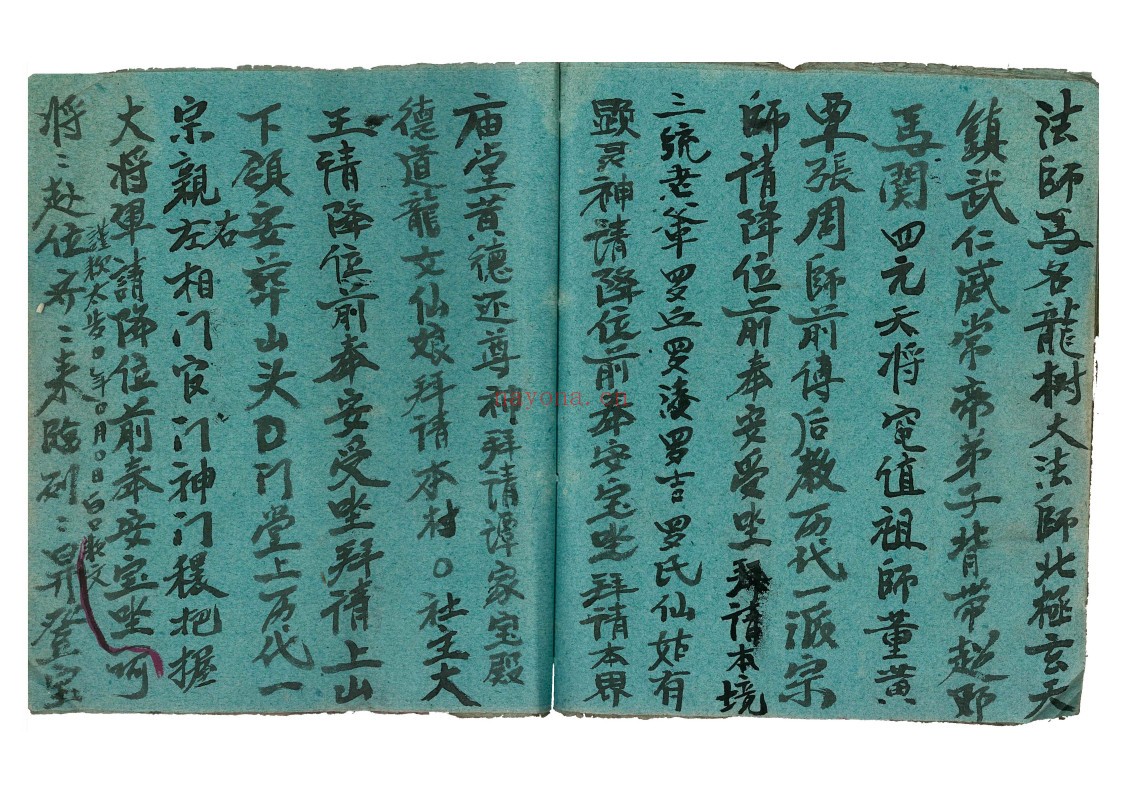 法師馬名龍树大法師北極玄天
鎮武仁威常帝弟子背带赵邓
馬関四元天将電值祖師董黄
覃張周師前傅后教万代一派宗
師請降位前奉安受坐拜請本境
三统老爷罗丘罗凌罗吉罗氏仙姑有
顕灵神請降位前奉安宝坐拜請本界
庙堂黄德还尊神拜請譚家宝殿
德道龍文仙娘拜請本村〇社主大
王請降位前奉安受坐拜請上山
下領安葬山头〇门堂上万代一
宗親左右相门官门神门稷把握
大将軍請降位前奉安宝坐呵
謹敕太告〇年〇月〇日白口文
将〻赴位齐〻来臨列〻昇登宝
huyona.cn